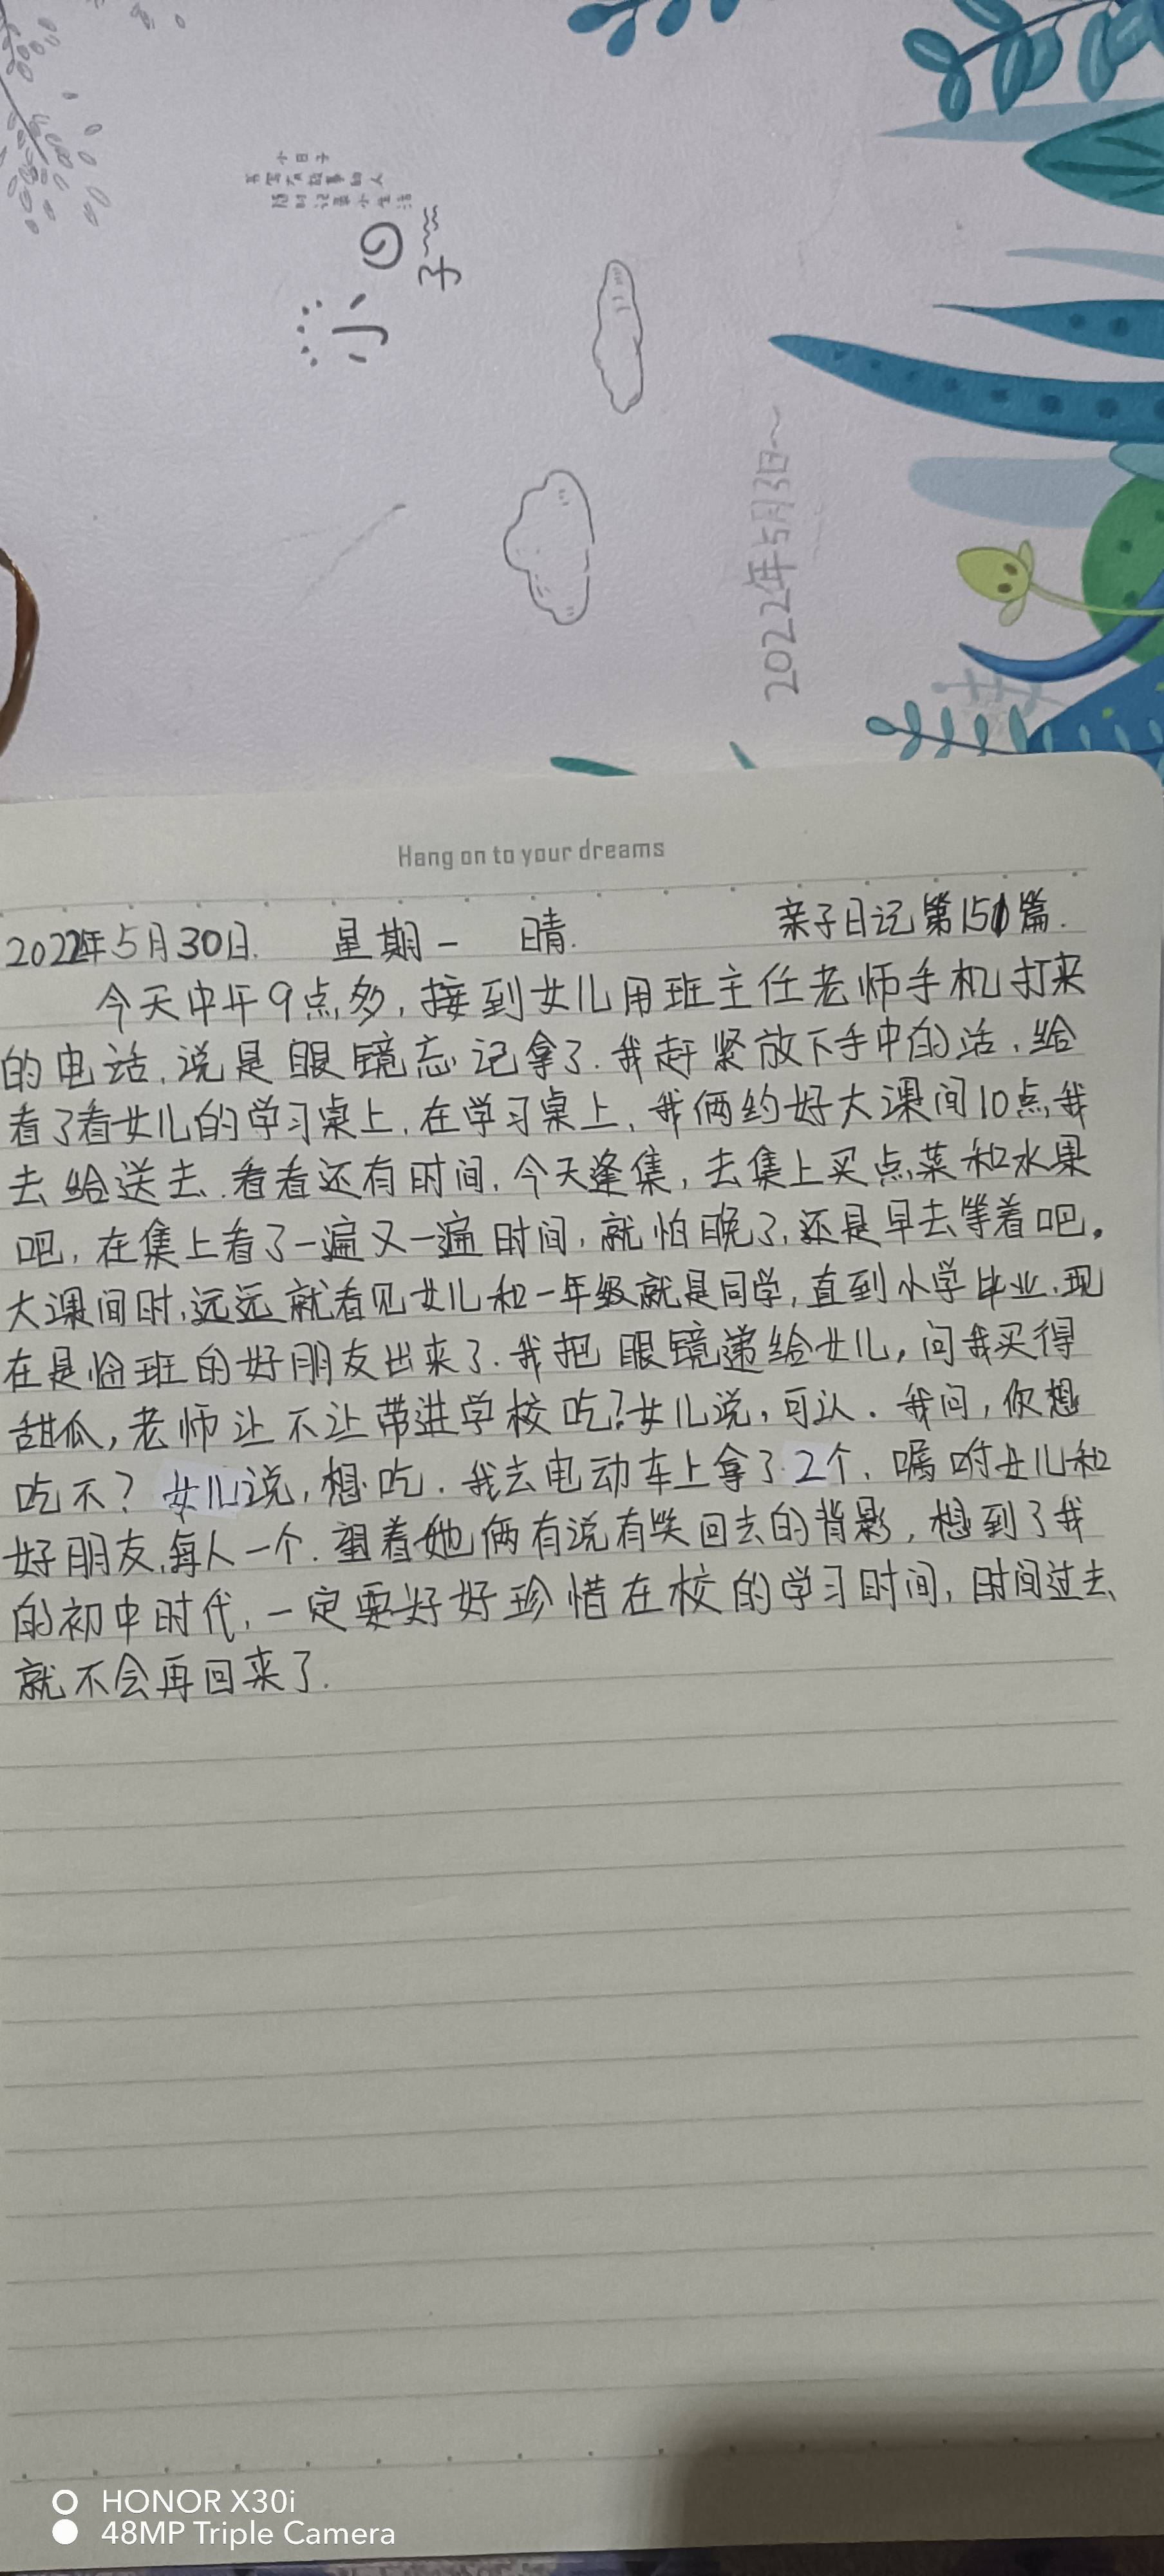 小日子
书写有故事的人
随时记录小生活
小日子
2022年5月3日~
Hang on to your dreams
2022年5月30日. 星期一 晴. 亲子日记第151篇.
今天中午9点多,接到女儿用班主任老师手机打来
的电话,说是眼镜忘记拿了.我赶紧放下手中的活,给
看了看女儿的学习桌上,在学习桌上,我俩约好大课间10点我
去给送去.看看还有时间,今天逢集,去集上买点菜和水果
吧,在集上看了一遍又一遍时间,就怕晚了,还是早去等着吧。
大课间时,远远就看见女儿和一年级就是同学,直到小学毕业,现
在是临班的好朋友出来了.我把眼镜递给女儿,问我买得
甜瓜,老师让不让带进学校吃?女儿说,可以.我问,你想
吃不?女儿说,想吃.我去电动车上拿了2个,嘱咐女儿和
好朋友,每人一个.望着她俩有说有笑回去的背影,想到了我
的初中时代,一定要好好珍惜在校的学习时间,时间过去,
就不会再回来了.
HONOR X30i
48MP Triple Camera